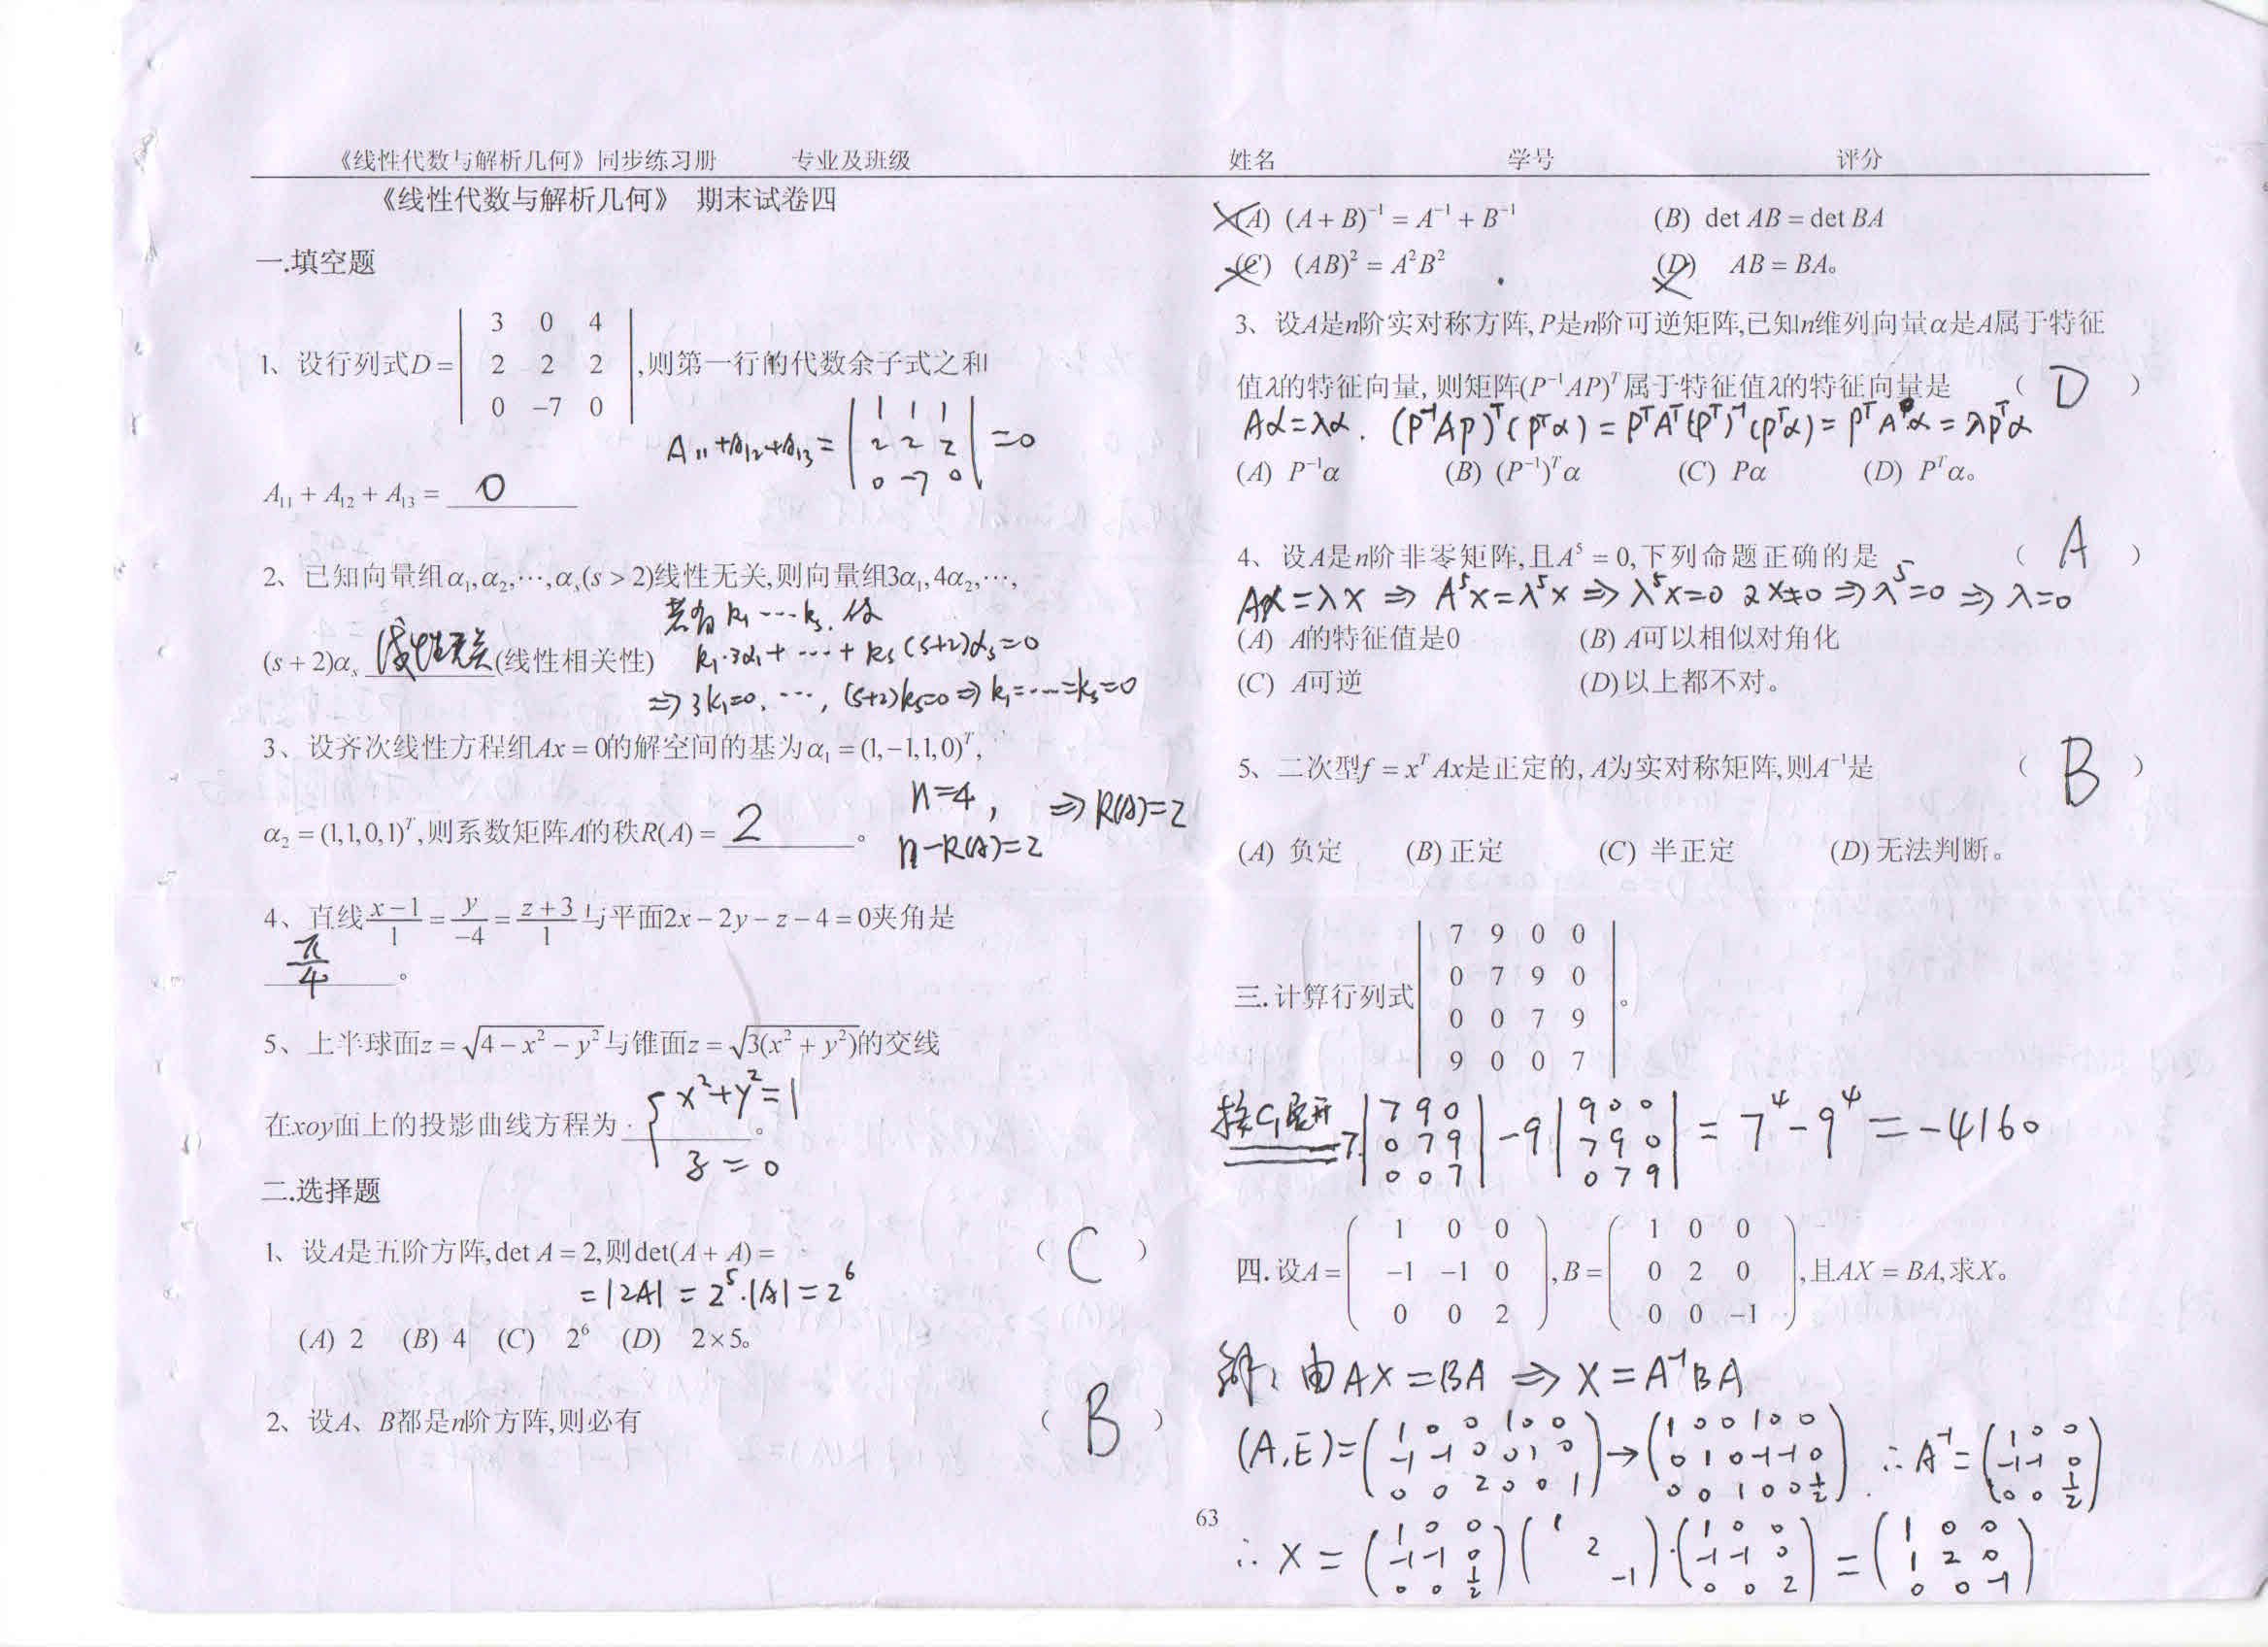 《线性代数与解析几何》同步练习册 专业及班级 姓名 学号 评分
《线性代数与解析几何》 期末试卷四
一.填空题
1、设行列式D = | 3 0 4 |
| 2 2 2 | ,则第一行的代数余子式之和
| 0 -7 0 |
A₁₁+A₁₂+A₁₃ = | 1 1 1 |
| 2 2 2 | =0
| 0 -7 0 |
A₁₁ + A₁₂ + A₁₃ = 0
2、已知向量组α₁,α₂,⋯,αₛ(s > 2)线性无关,则向量组3α₁,4α₂,⋯,
若有k₁⋯kₛ,使
(s + 2)αₛ 线性无关 (线性相关性) k₁·3α₁+⋯+kₛ(s+2)αₛ=0
⇒3k₁=0,⋯,(s+2)kₛ=0⇒k₁=⋯=kₛ=0
3、设齐次线性方程组Ax = 0的解空间的基为α₁ = (1,−1,1,0)ᵀ,
n=4, ⇒R(A)=2
α₂ = (1,1,0,1)ᵀ,则系数矩阵A的秩R(A) = 2 。
n−R(A)=2
4、直线(x−1)/1 = y/−4 = (z+3)/1与平面2x − 2y − z − 4 = 0夹角是
π/4 。
5、上半球面z = √(4 − x² − y²)与锥面z = √(3(x² + y²))的交线
在xoy面上的投影曲线方程为 { x²+y²=1 。
z=0
二.选择题
1、设A是五阶方阵,det A = 2,则det(A + A) = ( C )
=|2A|=2⁵·|A|=2⁶
(A) 2 (B) 4 (C) 2⁶ (D) 2×5。
2、设A、B都是n阶方阵,则必有 ( B )
(A) (A + B)⁻¹ = A⁻¹ + B⁻¹ (B) det AB = det BA
(C) (AB)² = A²B² (D) AB = BA。
3、设A是n阶实对称方阵,P是n阶可逆矩阵,已知n维列向量α是A属于特征
值λ的特征向量, 则矩阵(P⁻¹AP)ᵀ属于特征值λ的特征向量是 ( D )
Aα=λα. (P⁻¹AP)ᵀ(Pᵀα)=PᵀAᵀ(Pᵀ)⁻¹(Pᵀα)=PᵀAα=λPᵀα
(A) P⁻¹α (B) (P⁻¹)ᵀα (C) Pα (D) Pᵀα。
4、设A是n阶非零矩阵,且A⁵ = 0,下列命题正确的是 ( A )
AX=λX⇒A⁵X=λ⁵X⇒λ⁵X=0 又X≠0⇒λ⁵=0⇒λ=0
(A) A的特征值是0 (B) A可以相似对角化
(C) A可逆 (D)以上都不对。
5、二次型f = xᵀAx是正定的, A为实对称矩阵,则A⁻¹是 ( B )
(A) 负定 (B) 正定 (C) 半正定 (D)无法判断。
| 7 9 0 0 |
| 0 7 9 0 |
三.计算行列式 | 0 0 7 9 | 。
| 9 0 0 7 |
按C₁展开
7 | 7 9 0 | −9 | 9 0 0 | = 7⁴−9⁴ = −4160
| 0 7 9 | | 7 9 0 |
| 0 0 7 | | 0 7 9 |
四.设A = ( 1 0 0 ) , B = ( 1 0 0 )
( −1 −1 0 ) ( 0 2 0 ) ,且AX = BA,求X。
( 0 0 2 ) ( 0 0 −1 )
解: 由AX=BA ⇒ X=A⁻¹BA
(A,E)= ( 1 0 0 1 0 0 ) → ( 1 0 0 1 0 0 ) ∴A⁻¹= ( 1 0 0 )
( −1 −1 0 0 1 0 ) ( 0 1 0 −1 −1 0 ) ( −1 −1 0 )
( 0 0 2 0 0 1 ) ( 0 0 1 0 0 1/2 ) . ( 0 0 1/2 )
63
∴X = ( 1 0 0 ) ( 1 ) · ( 1 0 0 ) = ( 1 0 0 )
( −1 −1 0 ) ( 2 ) ( −1 −1 0 ) ( 1 2 0 )
( 0 0 1/2 ) ( −1 ) ( 0 0 2 ) ( 0 0 −1 )